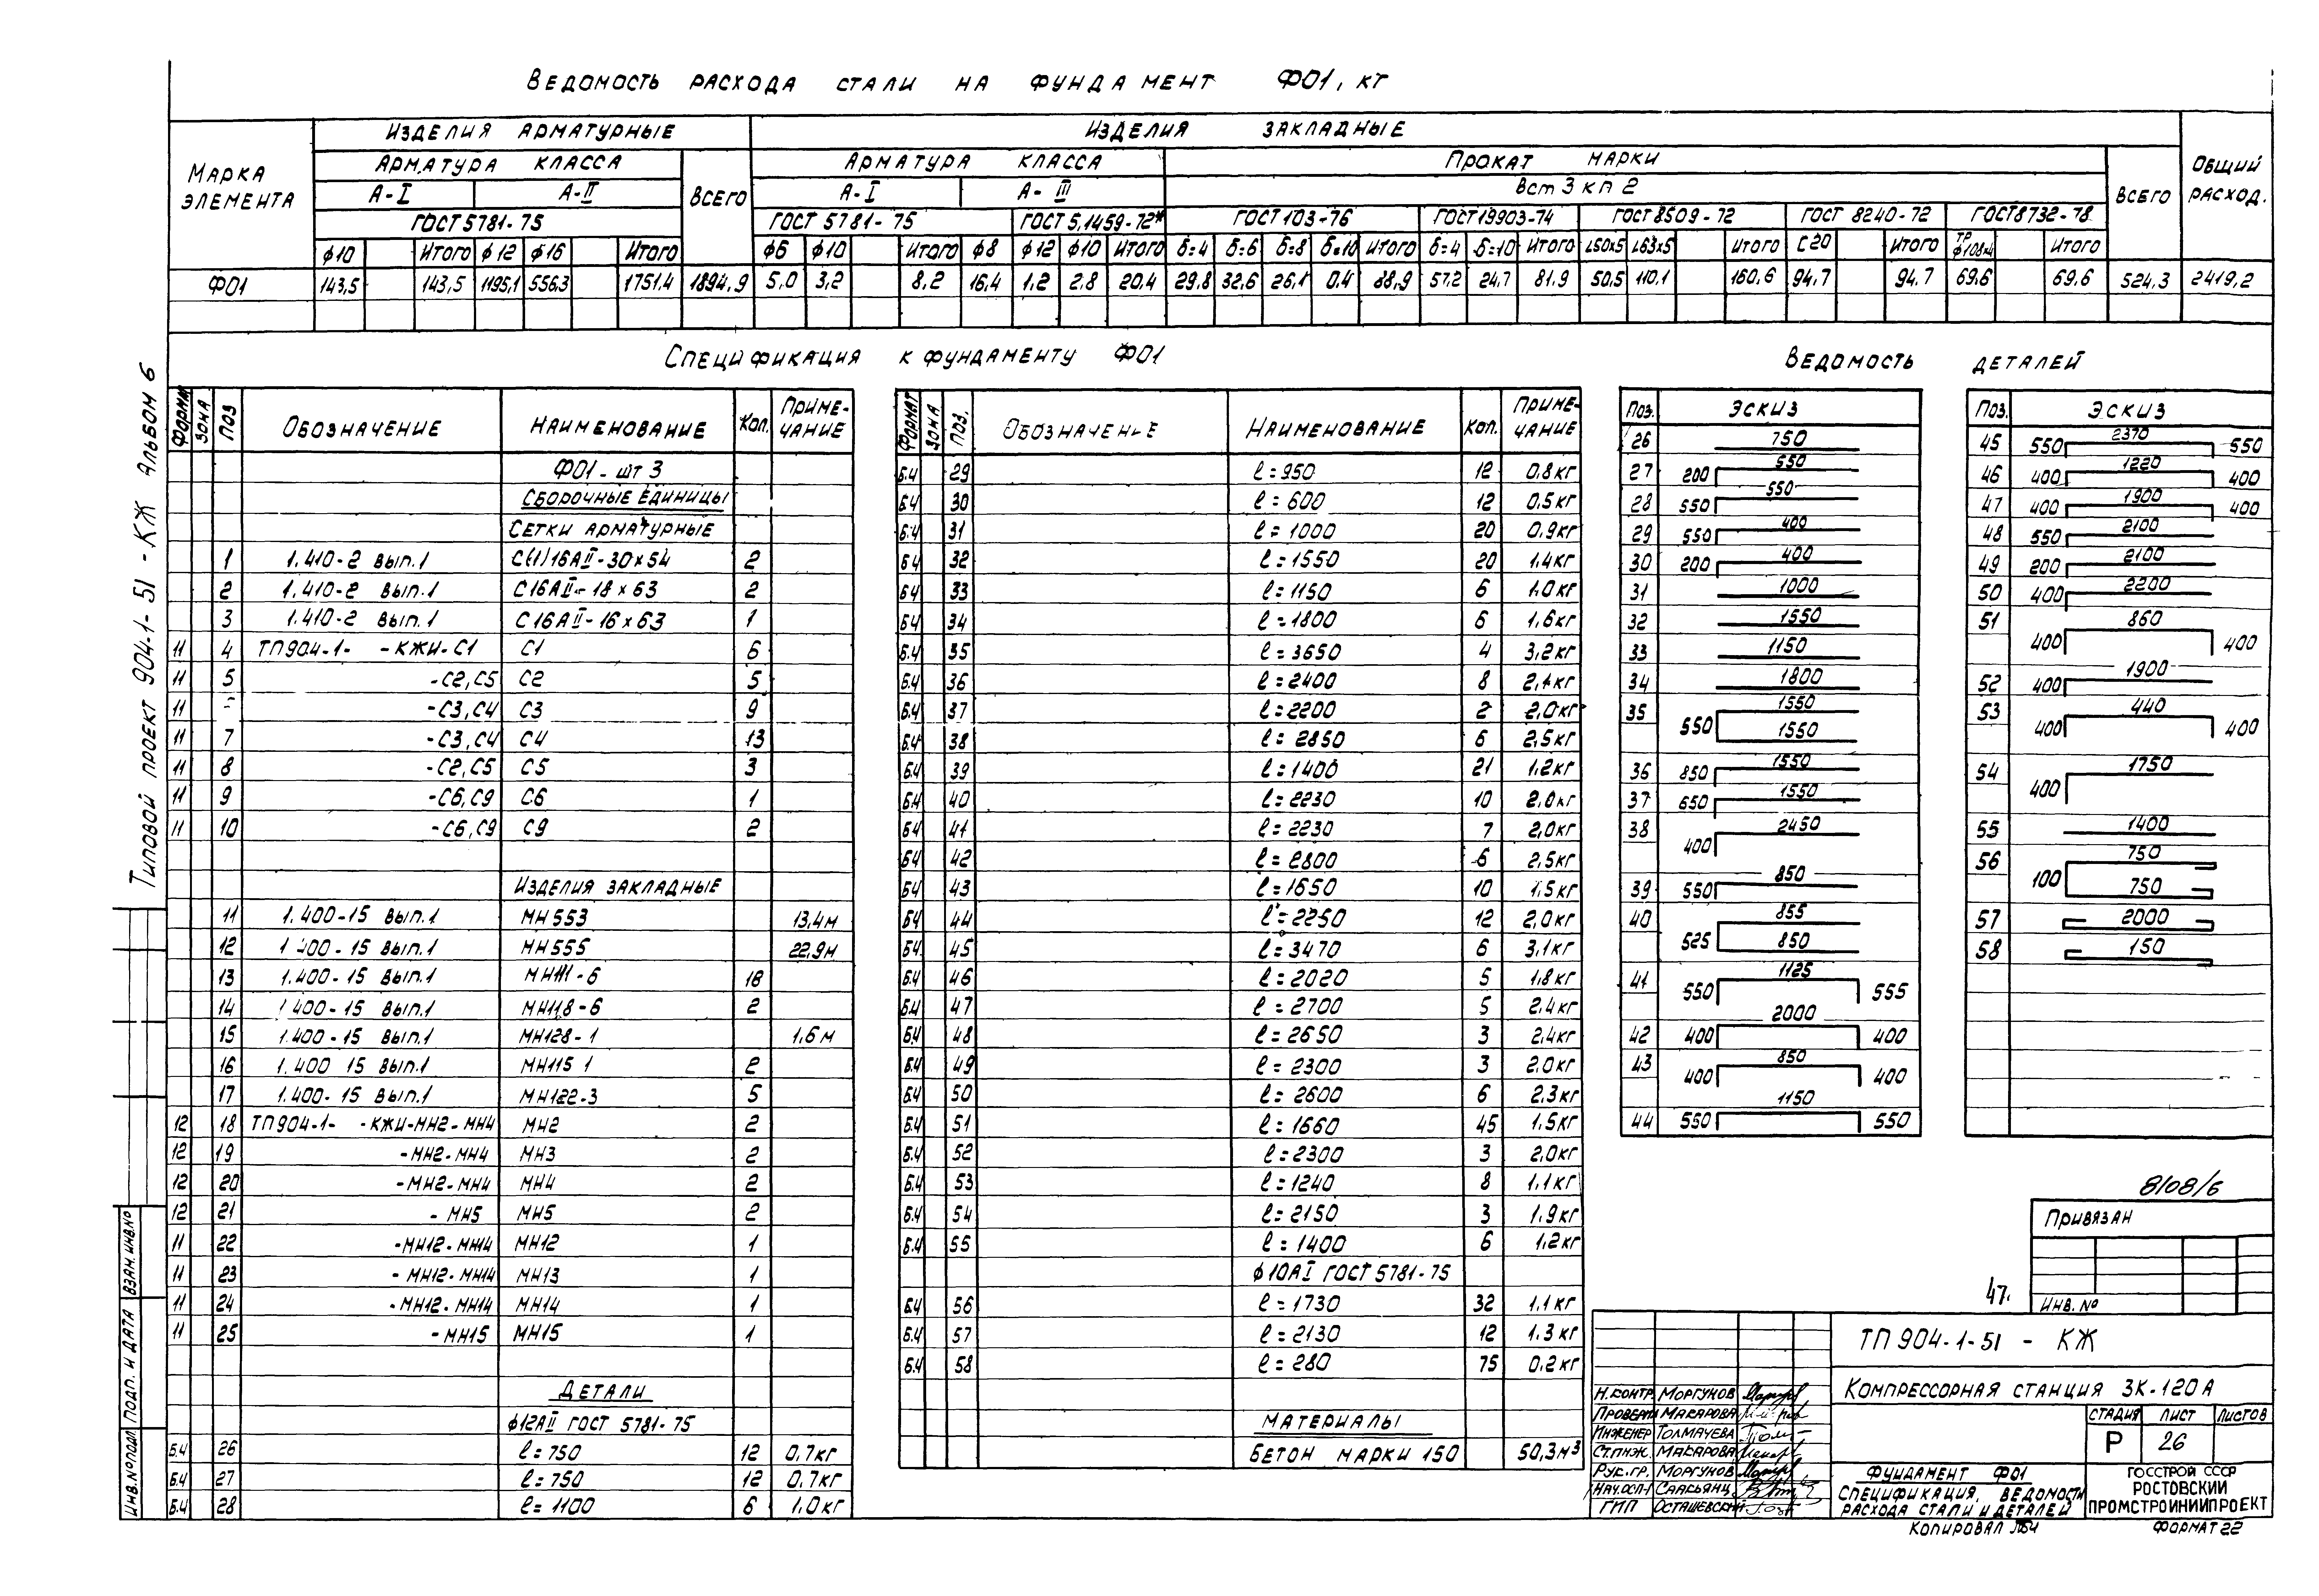 Ведомость расхода стали на фундамент Ф01, кг
Марка элемента
Изделия арматурные
Изделия закладные
Общий расход.
Арматура класса
Всего
Арматура класса
Прокат марки
Всего
А-I А-II
А-I А-III
Вст 3 кп 2
ГОСТ 5781-75
ГОСТ 5781-75 ГОСТ 5.1459-72* ГОСТ 103-76 ГОСТ 19903-74 ГОСТ 8509-72 ГОСТ 8240-72 ГОСТ 8732-78
ф10 Итого ф12 ф16 Итого ф6 ф10 Итого ф8 ф12 ф10 Итого δ=4 δ=6 δ=8 δ=10 Итого δ=4 δ=10 Итого L50x5 L63x5 Итого С20 Итого ТР ф108x4 Итого
Ф01 143,5 143,5 1195,1 556,3 1751,4 1894,9 5,0 3,2 8,2 16,4 1,2 2,8 20,4 29,8 32,6 26,1 0,4 88,9 57,2 24,7 81,9 50,5 110,1 160,6 94,7 94,7 69,6 69,6 524,3 2419,2
Типовой проект 904-1-51 -КЖ Альбом 6
Спецификация к фундаменту Ф01
Формат Зона Поз Обозначение Наименование Кол. Примечание
Ф01 - шт 3
Сборочные единицы
Сетки арматурные
1 1.410-2 вып.1 С(1)16АII-30x54 2
2 1.410-2 вып.1 С16АII-18x63 2
3 1.410-2 вып.1 С16АII-16x63 1
11 4 ТП904-1- -КЖИ-С1 С1 6
11 5 -С2,С5 С2 5
11 -С3,С4 С3 9
11 7 -С3,С4 С4 13
11 8 -С2,С5 С5 3
11 9 -С6,С9 С6 1
11 10 -С6,С9 С9 2
Изделия закладные
11 1.400-15 вып.1 МН553 13,4м
12 1.400-15 вып.1 МН555 22,9м
13 1.400-15 вып.1 МН111-6 18
14 1.400-15 вып.1 МН118-6 2
15 1.400-15 вып.1 МН128-1 1,6м
16 1.400 15 вып.1 МН115 1 2
17 1.400-15 вып.1 МН122-3 5
12 18 ТП904-1- -КЖИ-МН2-МН4 МН2 2
12 19 -МН2-МН4 МН3 2
12 20 -МН2-МН4 МН4 2
12 21 - МН5 МН5 2
11 22 -МН12-МН14 МН12 1
11 23 -МН12-МН14 МН13 1
11 24 -МН12-МН14 МН14 1
11 25 -МН15 МН15 1
Детали
ф12АII ГОСТ 5781-75
Б.Ч 26 ℓ=750 12 0,7кг
Б.Ч 27 ℓ=750 12 0,7кг
Б.Ч 28 ℓ=1100 6 1,0кг
Формат Зона Поз. Обозначение Наименование Кол. Примечание
Б.Ч 29 ℓ=950 12 0,8кг
Б.Ч 30 ℓ=600 12 0,5кг
Б.Ч 31 ℓ=1000 20 0,9кг
Б.Ч 32 ℓ=1550 20 1,4кг
Б.Ч 33 ℓ=1150 6 1,0кг
Б.Ч 34 ℓ=1800 6 1,6кг
Б.Ч 35 ℓ=3650 4 3,2кг
Б.Ч 36 ℓ=2400 8 2,1кг
Б.Ч 37 ℓ=2200 2 2,0кг
Б.Ч 38 ℓ=2850 6 2,5кг
Б.Ч 39 ℓ=1400 21 1,2кг
Б.Ч 40 ℓ=2230 10 2,0кг
Б.Ч 41 ℓ=2230 7 2,0кг
Б.Ч 42 ℓ=2800 6 2,5кг
Б.Ч 43 ℓ=1650 10 1,5кг
Б.Ч 44 ℓ=2250 12 2,0кг
Б.Ч 45 ℓ=3470 6 3,1кг
Б.Ч 46 ℓ=2020 5 1,8кг
Б.Ч 47 ℓ=2700 5 2,4кг
Б.Ч 48 ℓ=2650 3 2,4кг
Б.Ч 49 ℓ=2300 3 2,0кг
Б.Ч 50 ℓ=2600 6 2,3кг
Б.Ч 51 ℓ=1660 45 1,5кг
Б.Ч 52 ℓ=2300 3 2,0кг
Б.Ч 53 ℓ=1240 8 1,1кг
Б.Ч 54 ℓ=2150 3 1,9кг
Б.Ч 55 ℓ=1400 6 1,2кг
ф10АI ГОСТ 5781-75
Б.Ч 56 ℓ=1730 32 1,1кг
Б.Ч 57 ℓ=2130 12 1,3кг
Б.Ч 58 ℓ=280 75 0,2кг
Материалы
Бетон марки 150 50,3м³
Ведомость деталей
Поз. Эскиз
26 750
27 200 550
28 550 550
29 550 400
30 200 400
31 1000
32 1550
33 1150
34 1800
35 550 1550 1550
36 850 1550
37 650 1550
38 400 2450
39 550 850
40 525 855 850
41 550 1125 555
42 400 2000 400
43 400 850 400
44 550 1150 550
Поз. Эскиз
45 550 2370 550
46 400 1220 400
47 400 1900 400
48 550 2100
49 200 2100
50 400 2200
51 400 860 400
52 400 1900
53 400 440 400
54 400 1750
55 1400
56 100 750 750
57 2000
58 150
8108/6
Привязан
Инв. №
47.
ТП 904-1-51 - КЖ
Компрессорная станция 3К-120А
Стадия Лист Листов
Р 26
Н.контр Моргунов
Проверил Макарова
Инженер Толмачева
Ст.инж. Макарова
Рук.гр. Моргунов
Нач.ОСП-1 Саасьянц
ГИП Осташевский
Фундамент Ф01
Спецификация, ведомости расхода стали и деталей
Госстрой СССР
Ростовский
Промстройниипроект
Копировал
Формат 22
Взам. инв.№
Подп. и дата
Инв.№подл.